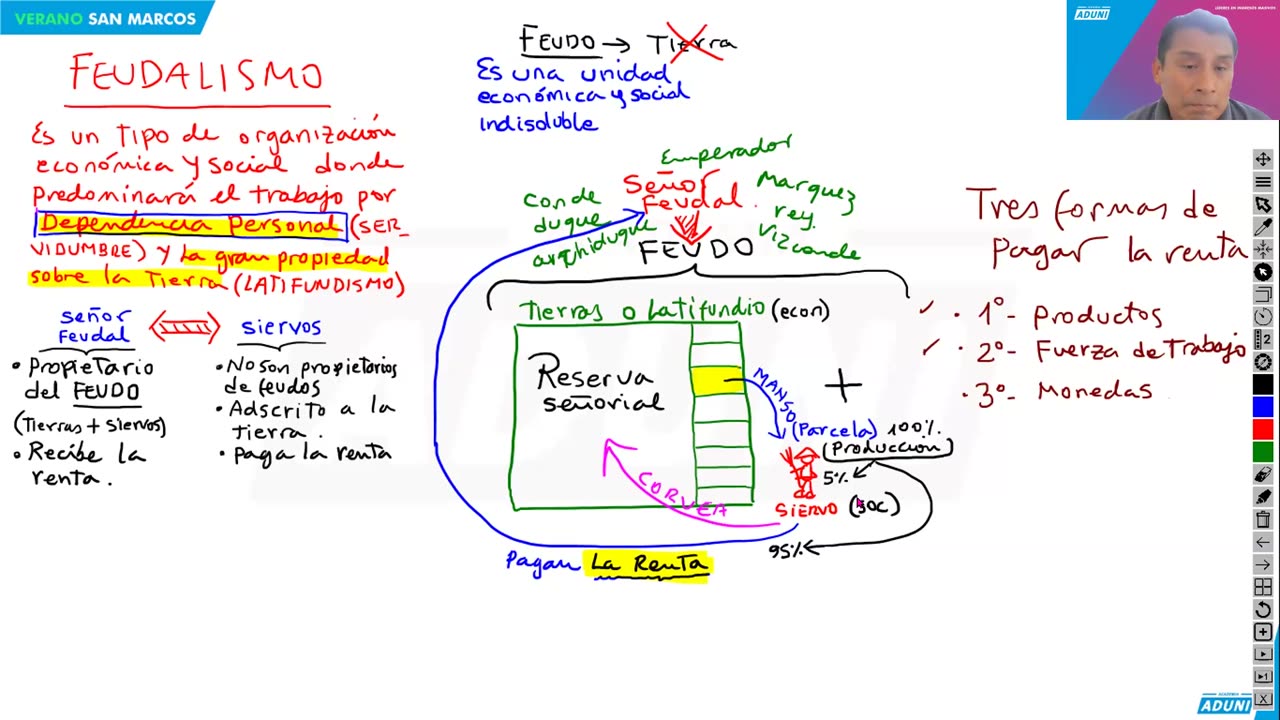 VERANO SAN MARCOS
FEUDALISMO
Es un tipo de organización
económica y social donde
predominará el trabajo por
Dependencia Personal (SER_
VIDUMBRE) y la gran propiedad
sobre la tierra (LATIFUNDISMO)
señor
feudal
siervos
• Propietario
del FEUDO
(tierras + siervos)
• Recibe la
renta.
• No son propietarios
de feudos
• Adscrito a la
tierra.
• paga la renta
FEUDO → Tierra
Es una unidad
económica y social
indisoluble
Emperador
Señor
Feudal.
conde
duque
archiduque
Marquez
rey.
Vizconde
FEUDO
Tierras o Latifundio (econ)
Reserva
señorial
MANSO
(Parcela) 100%.
(Producción)
5%
SIERVO (soc)
CORVEA
95%
Pagan La Renta
+
Tres formas de
pagar la renta
✓ • 1º- Productos
✓ • 2º- Fuerza de Trabajo
• 3º- Monedas
ADUNI
ACADEMIA
ADUNI